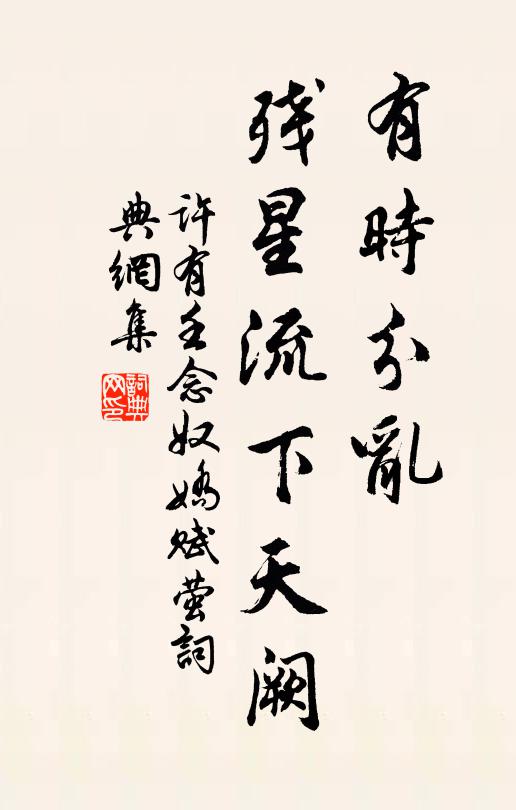 有時分亂
残星流下天闕
許有壬念奴嬌賦萤詞
典網集
詞典
网印